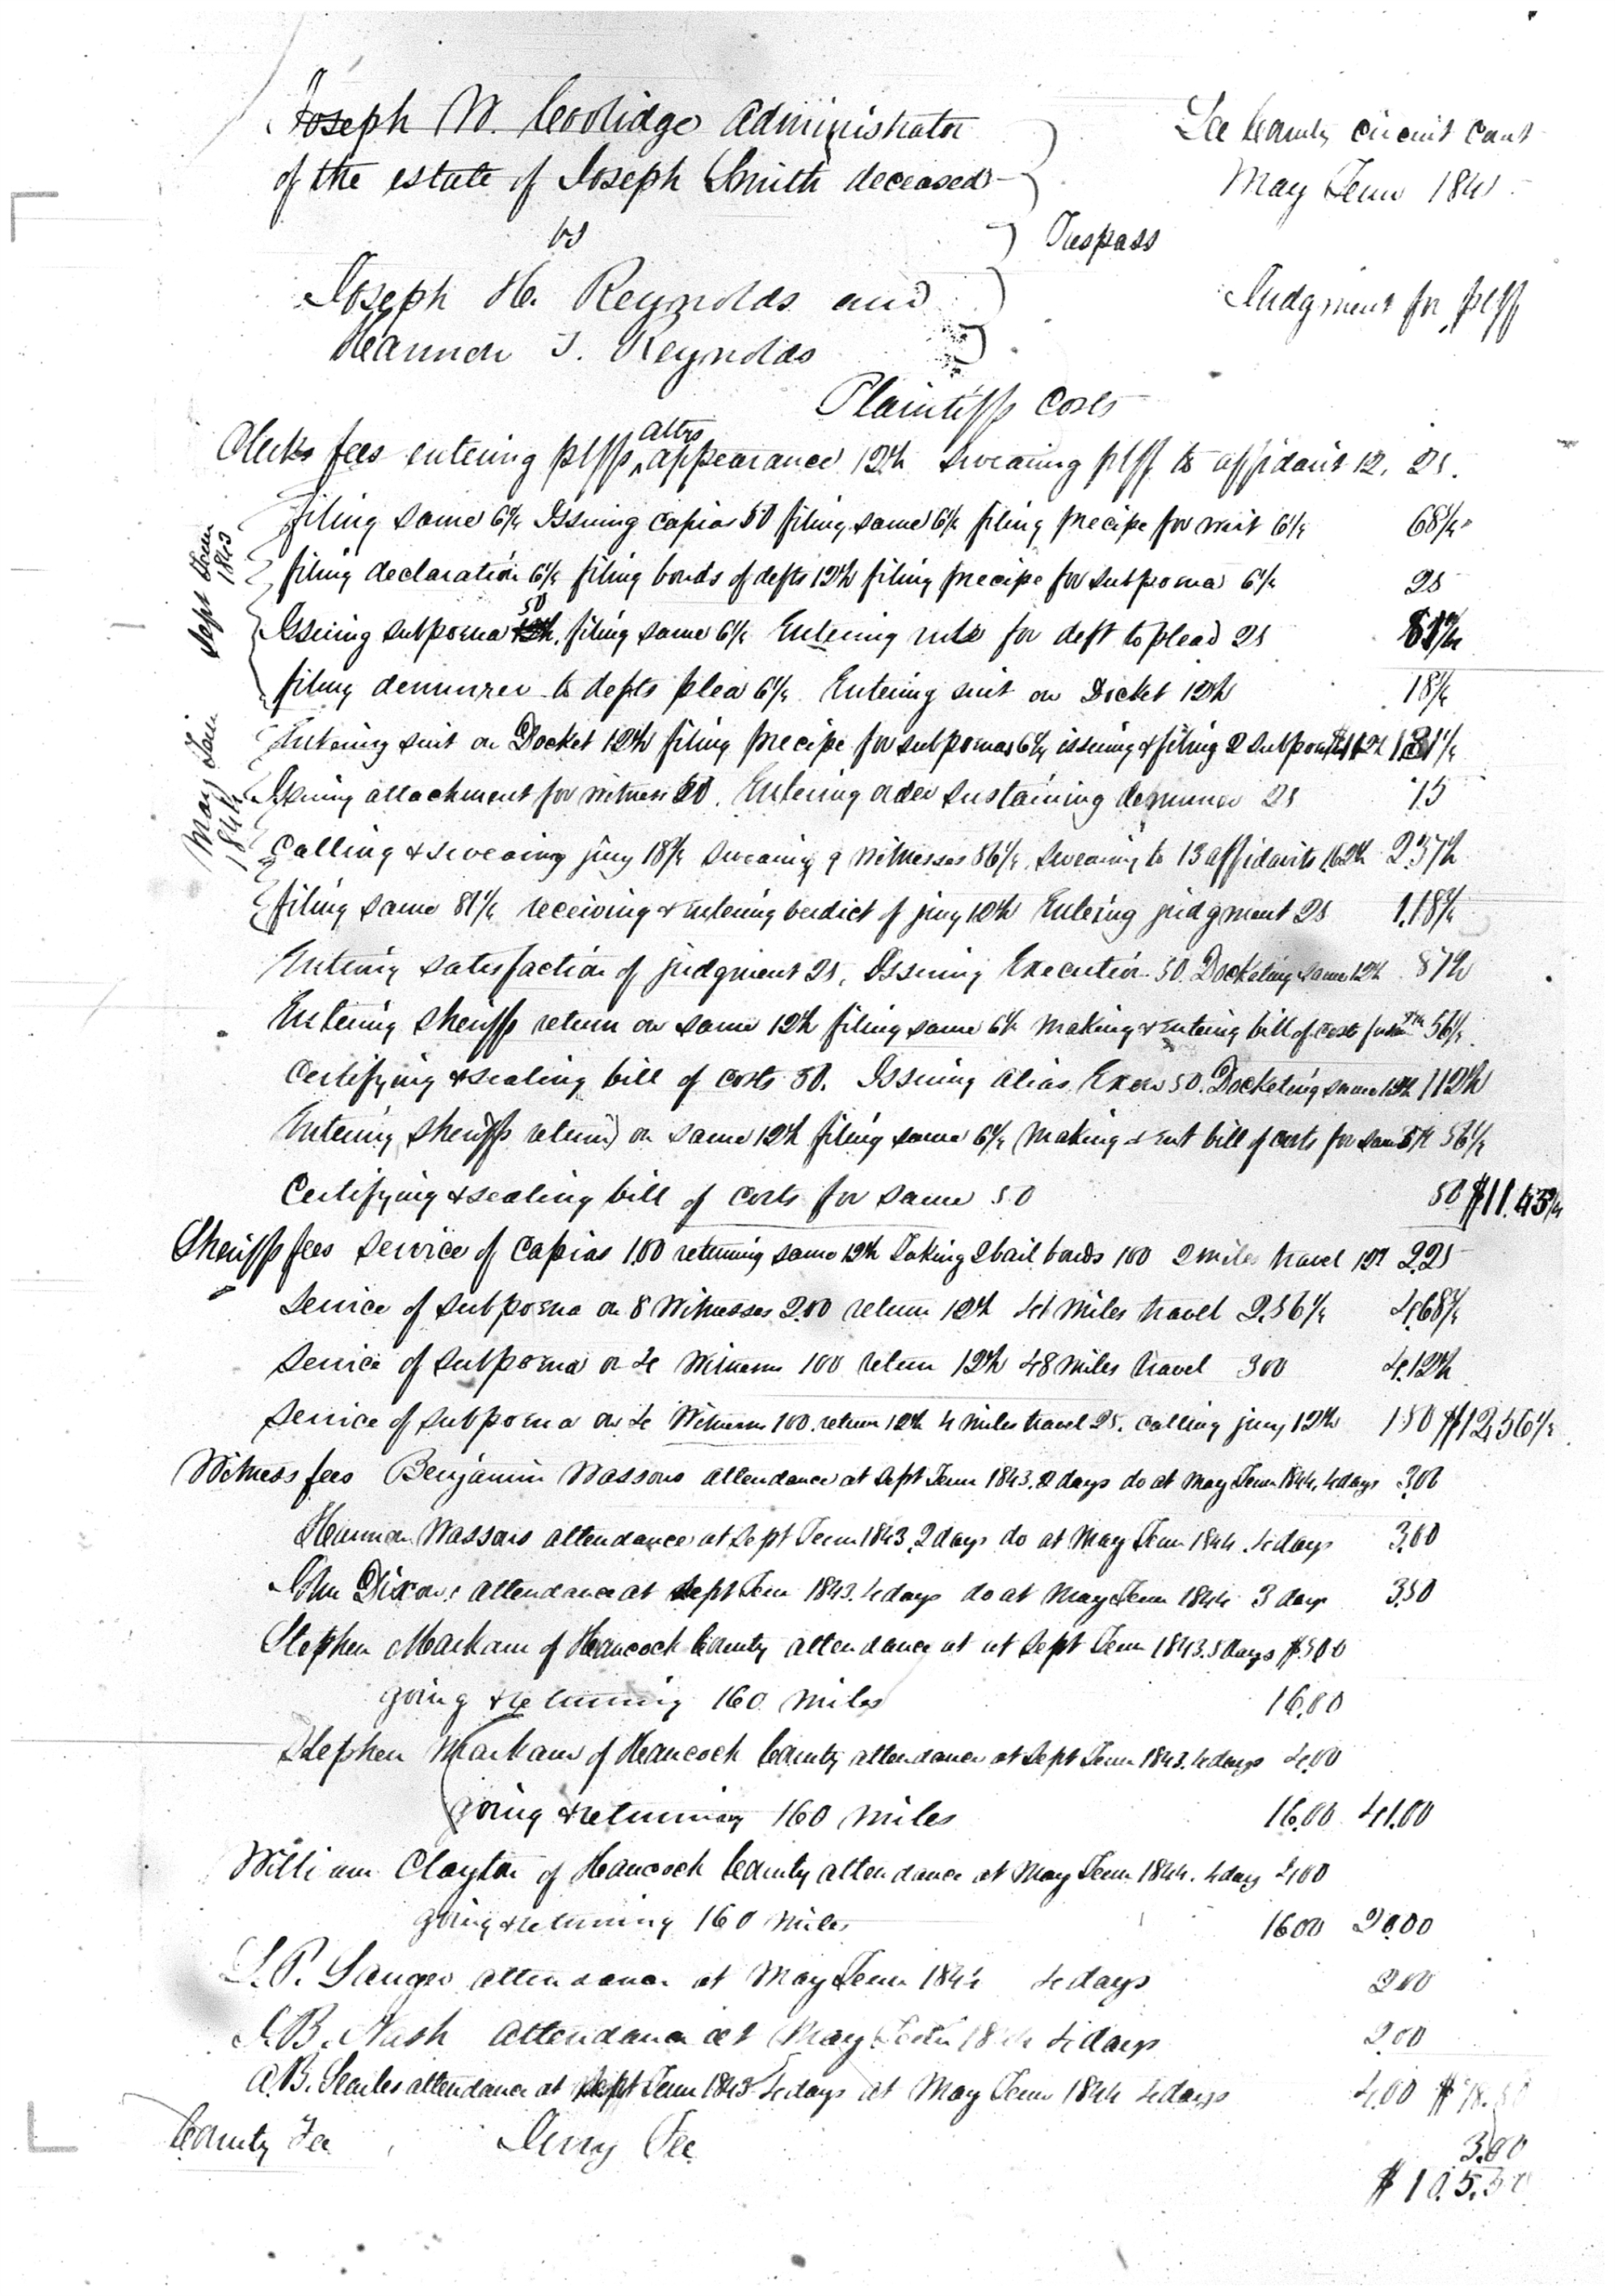 Joseph W. Coolidge Administrator
of the estate of Joseph Smith deceased
vs
Joseph H. Reynolds and
Harmon T. Reynolds
Trespass
Lee County circuit court
May Term 184
Judgment for plff
Plaintiffs Costs
Clerks fees entering plffs attys appearance 12½ swearing plff to affidavit 12, 25.
Sept Term 1843
filing same 6¼ Issuing capias 50 filing same 6¼ filing precipe for writ 6¼ 68¾
filing declaration 6¼ filing bonds of defts 12½ filing precipe for subpoena 6¼ 25
Issuing subpoena 50 filing same 6¼ Entering rule for deft to plead 25 81¼
filing demurrer to defts plea 6¼ Entering suit on Docket 12½ 18¾
May Term 1844
Entering suit on Docket 12½ filing precipe for subpoenas 6¼ issuing & filing 2 subpoenas 1.12½ 1.31¼
Issuing attachment for witness 50. Entering order sustaining demurrer 25 75
Calling & swearing jury 18¾ swearing 9 witnesses 56¼ swearing to 13 affidavits 1.62½ 2.37½
filing same 81¼ receiving & entering verdict of jury 12½ Entering judgment 25 1.18¾
Entering satisfaction of judgment 25, Issuing Execution 50. Docketing same 12½ 87½
Entering sheriffs return on same 12½ filing same 6¼ making & entering bill of cost for same 37½ 56¼
Certifying & sealing bill of costs 50. Issuing alias Exon 50. Docketing same 12½ 112½
Entering sheriffs return on same 12½ filing same 6¼ making & ent bill of costs for same 37½ 56¼
Certifying & sealing bill of costs for same 50 50 $11.43¾
Sheriffs fees service of Capias 1.00 returning same 12½ Taking 2 bail bonds 100 2 miles travel 12½ 2.25
Service of subpoena on 8 Witnesses 2.00 return 12½ 41 miles travel 2.56¼ 4.68¾
Service of subpoena on 4 Witnesses 100 return 12½ 48 miles travel 300 4.12½
Service of subpoena on 4 Witnesses 100. return 12½ 4 miles travel 25. calling jury 12½ 150 $12.56¼
Witness fees Benjamin Wassons attendance at Sept Term 1843. 2 days do at May Term 1844, 4 days 3.00
Harmon Wassons attendance at Sept Term 1843, 2 days do at May Term 1844. 4 days 3.00
John Dixons attendance at Sept Term 1843. 4 days do at May Term 1844 3 days 3.50
Stephen Markam of Hancock County attendance at at Sept Term 1843. 5 days $5.00
going & returning 160 miles 16.00
Stephen Markam of Hancock County attendance at Sept Term 1843. 4 days 4.00
going & returning 160 miles 16.00 41.00
William Clayton of Hancock County attendance at May Term 1844. 4 days 4.00
going & returning 160 miles 16 00 20.00
L. P. Sanger attendance at May Term 1844 4 days 2 00
J. B. Nash attendance at May Term 1844 4 days 2.00
A. B. Searles attendance at Sept Term 1843 4 days at May Term 1844 4 days 4.00 $78.50
County Fee Jury Fee 3.00
$105.50